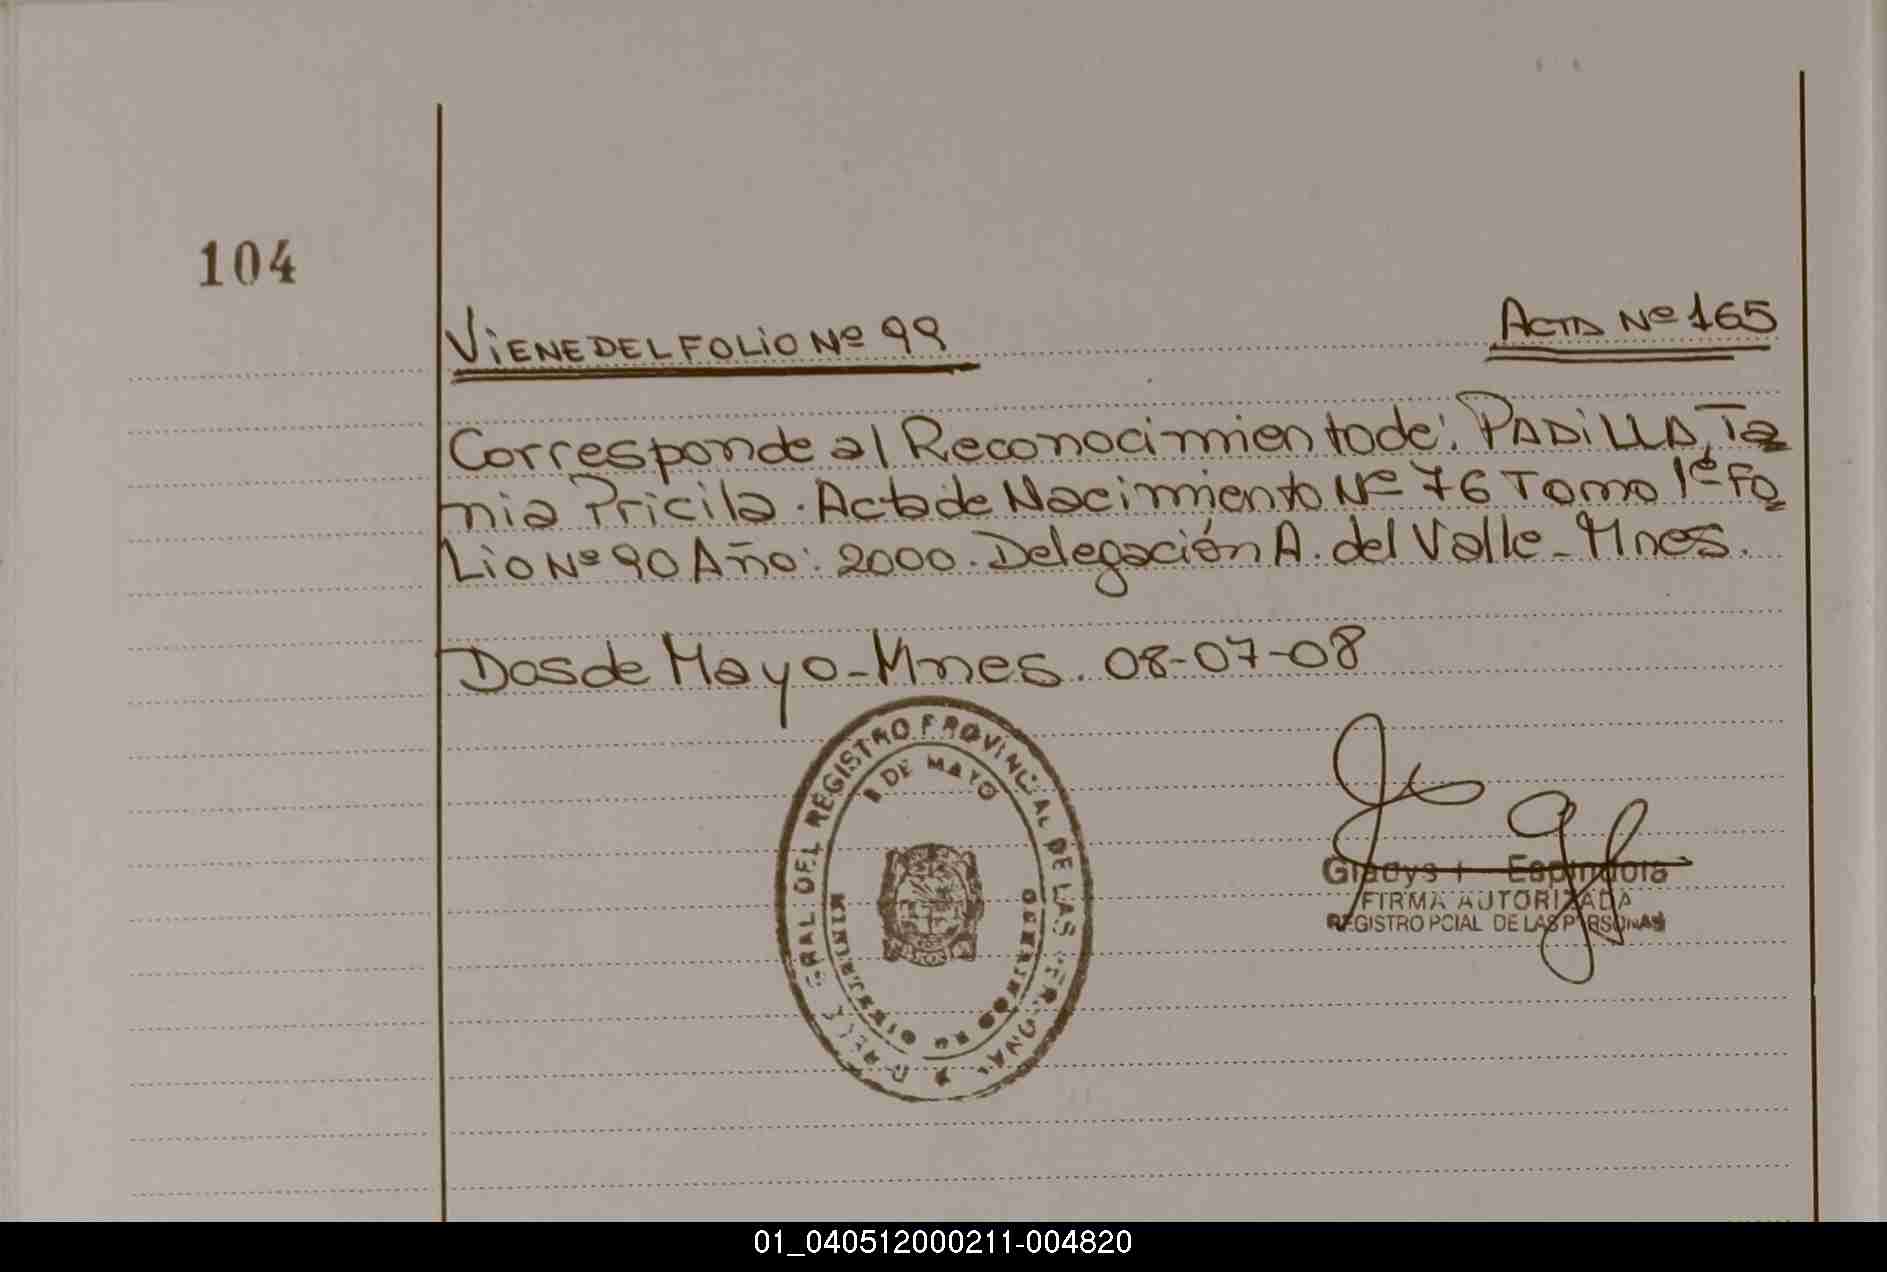 104
VIENE DEL FOLIO Nº 99
ACTA Nº 165
Corresponde al Reconocimiento de: PADILLA, Ta
nia Pricila. Acta de Nacimiento Nº 76 Tomo 1º FO
LIO Nº 90 Año: 2000. Delegación A. del Valle - Mnes.
Dos de Mayo - Mnes. 08-07-08
GRAL DEL REGISTRO PROVINCIAL DE LAS PERSONAS
DE MAYO
Gladys Espindola
FIRMA AUTORIZADA
REGISTRO PCIAL DE LAS PERSONAS
01_040512000211-004820